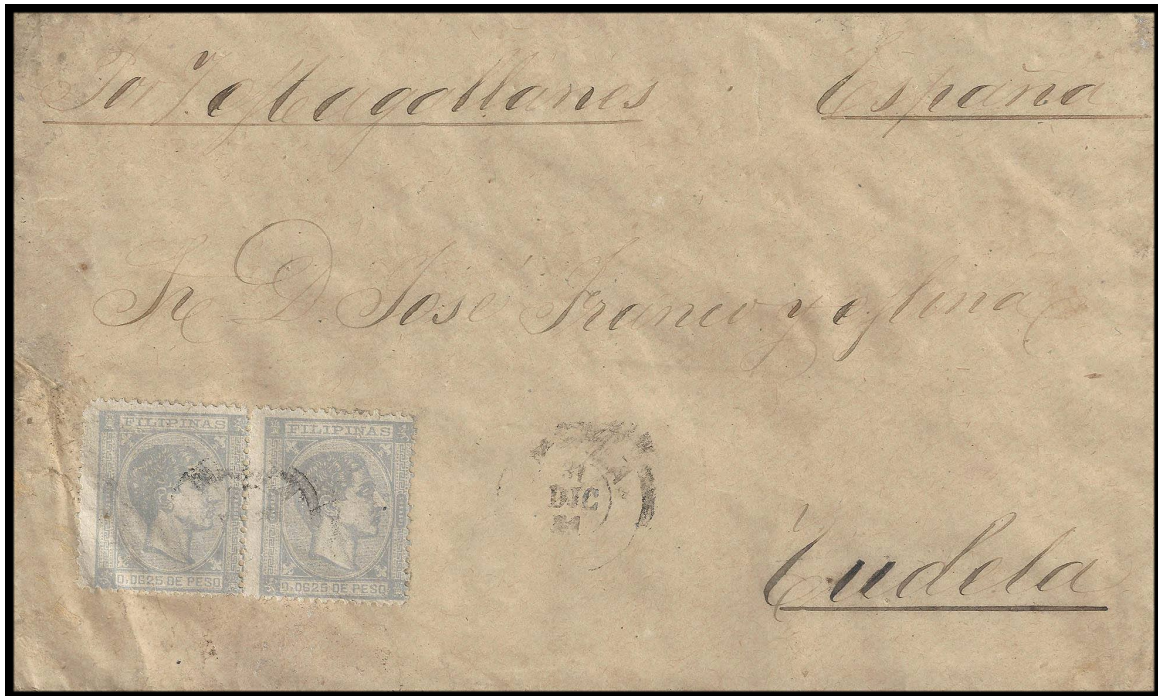 Por V. Magallanes
España
Sr. D. José Franco y
FILIPINAS
FILIPINAS
0,0625 DE PESO
0,0625 DE PESO
DIC
Tudela